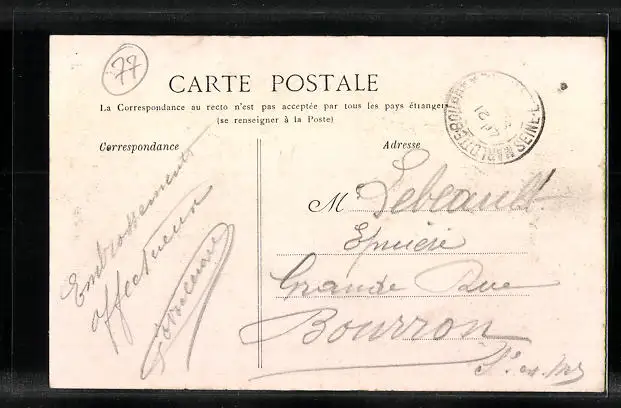 77
CARTE POSTALE
La Correspondance au recto n'est pas acceptée par tous les pays étrangers
(se renseigner à la Poste)
Correspondance
Adresse
Embrassements
affectueux
M Lebeault
Epicière
Grande Rue
Bourron
S. et M.
SEINE
21